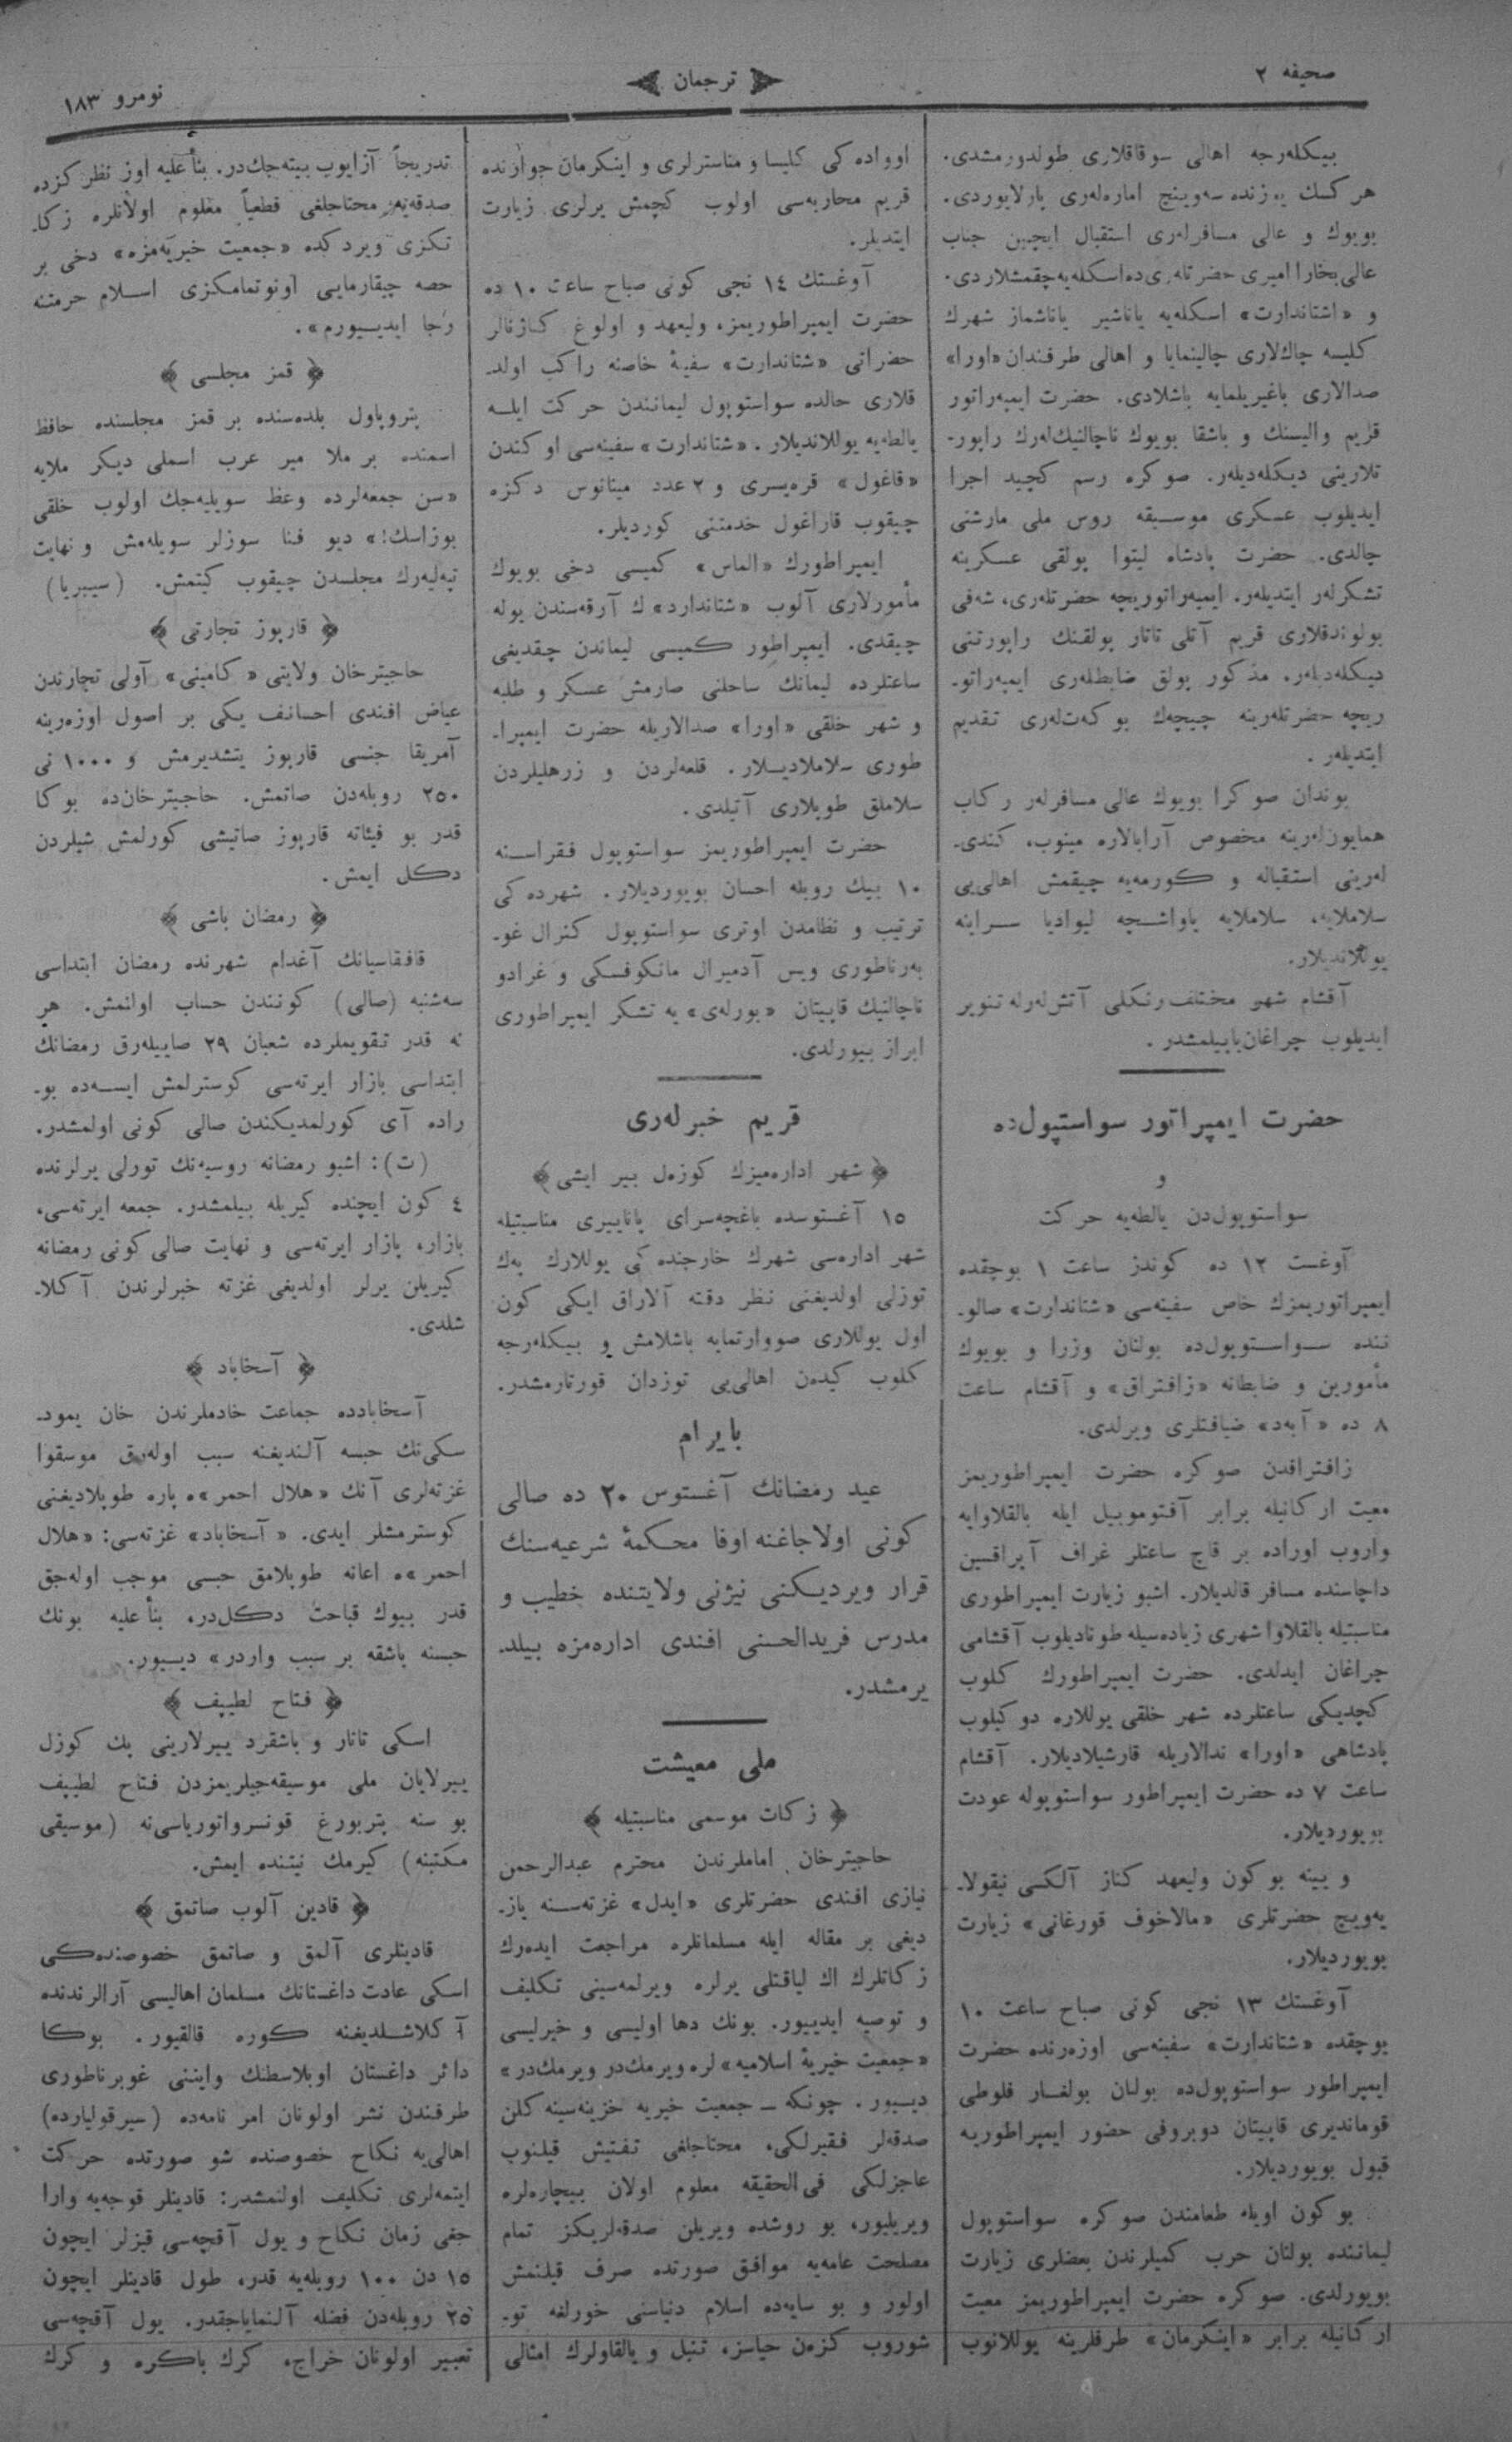 صحیفه ٢
ترجمان
نومرو ١٨٣
بیكله‌رجه اهالی سوقاقلاری طولدورمشدی.
هر كسك یوزنده سه‌وینج اماره‌له‌ری پارلایوردی.
بویوك و عالی مسافرله‌ری استقبال ایچین جناب
عالی بخارا امیری حضرتله‌ری ده اسكله‌یه چقمشلاردی.
و «اشتاندارت» اسكله‌یه یاناشیر یاناشماز شهرك
كلیسه چاك‌لاری چالینمایا و اهالی طرفندان «اورا»
صدالاری باغیریلمایه باشلادی. حضرت ایمپه‌راتور
قریم والیسنك و باشقا بویوك ناچالنیك‌له‌رك راپور-
تلارینی دیكله‌دیله‌ر. صوكره رسم كچید اجرا
ایدیلوب عسكری موسیقه روس ملی مارشنی
چالدی. حضرت پادشاه لیتوا پولقی عسكرینه
تشكرله‌ر ایتدیله‌ر. ایمپه‌راتوریچه حضرتله‌ری، شه‌فی
بولوندقلاری قریم آتلی تاتار پولقنك راپورتنی
دیكله‌دیله‌ر. مذكور پولق ضابطله‌ری ایمپه‌راتو-
ریچه حضرتله‌رینه چیچه‌ك بوكه‌تله‌ری تقدیم
ایتدیله‌ر.
بوندان صوكرا بویوك عالی مسافرله‌ر ركاب
همایون‌له‌رینه مخصوص آرابالاره مینوب، كندی-
له‌رینی استقباله و كورمه‌یه چیقمش اهالی‌یی
سلاملایه، سلاملایه یاواشچه لیوادیا سراینه
یوللاندیلار.
آقشام شهر مختلف رنكلی آتش‌له‌رله تنویر
ایدیلوب چراغان یاپیلمشدر.
حضرت ایمپراتور سواستپول‌ده
و
سواستوپول‌دن یالطه‌یه حركت
آوغست ١٢ ده كوندز ساعت ١ بوچقده
ایمپراتوریمزك خاص سفینه‌سی «شتاندارت» صالو-
ننده سواستوپول‌ده بولنان وزرا و بویوك
مأمورین و ضابطانه «زافتراق» و آقشام ساعت
٨ ده «آبه‌د» ضیافتلری ویرلدی.
زافتراقدن صوكره حضرت ایمپراطوریمز
معیت اركانیله برابر آفتوموبیل ایله بالقلاوایه
واروب اوراده بر قاچ ساعتلر غراف آپراقسین
داچاسنده مسافر قالدیلار. اشبو زیارت ایمپراطوری
مناسبتیله بالقلاوا شهری زیاده‌سیله طونادیلوب آقشامی
چراغان ایدلدی. حضرت ایمپراطورك كلوب
كچدیكی ساعتلرده شهر خلقی یوللاره دوكیلوب
پادشاهی «اورا» ندالاریله قارشیلادیلار. آقشام
ساعت ٧ ده حضرت ایمپراطور سواستوپوله عودت
بویوردیلار.
و یینه بوكون ولیعهد كناز آلكسی نیقولا-
یه‌ویچ حضرتلری «مالاخوف قورغانی» زیارت
بویوردیلار.
آوغستك ١٣ نجی كونی صباح ساعت ١٠
بوچقده «شتاندارت» سفینه‌سی اوزه‌رنده حضرت
ایمپراطور سواستوپول‌ده بولنان بولغار فلوطی
قوماندیری قاپیتان دوبروفی حضور ایمپراطوریه
قبول بویوردیلار.
بوكون اویله طعامندن صوكره سواستوپول
لیماننده بولنان حرب كمیلرندن بعضلری زیارت
بویورلدی. صوكره حضرت ایمپراطوریمز معیت
اركانیله برابر «اینكرمان» طرفلرینه یوللانوب
اوواده‌كی كلیسا و مناسترلری و اینكرمان جوارنده
قریم محاربه‌سی اولوب كچمش یرلری زیارت
ایتدیلر.
آوغستك ١٤ نجی كونی صباح ساعت ١٠ ده
حضرت ایمپراطوریمز، ولیعهد و اولوغ كناژنالر
حضراتی «شتاندارت» سفینهٔ خاصنه راكب اولد-
قلاری حالده سواستوپول لیمانندن حركت ایله
یالطه‌یه یوللاندیلار. «شتاندارت» سفینه‌سی اوكندن
«قاغول» قره‌یسری و ٢ عدد مینانوس دكزه
چیقوب قاراغول خدمتنی كوردیلر.
ایمپراطورك «الماس» كمیسی دخی بویوك
مأمورلاری آلوب «شتاندارد» ك آرقه‌سندن یوله
چیقدی. ایمپراطور كمیسی لیماندن چقدیغی
ساعتلرده لیمانك ساحلنی صارمش عسكر و طلبه
و شهر خلقی «اورا» صدالاریله حضرت ایمپرا-
طوری سلاملادیلار. قلعه‌لردن و زرهلیلردن
سلاملق طوپلاری آتیلدی.
حضرت ایمپراطوریمز سواستوپول فقراسنه
١٠ بیك روبله احسان بویوردیلار. شهرده‌كی
ترتیب و نظامدن اوتری سواستوپول كنرال غو-
به‌رناطوری ویس آدمیرال مانكوفسكی و غرادو
ناچالنیك قاپیتان «بورله‌ی» یه تشكر ایمپراطوری
ابراز بیورلدی.
قریم خبرله‌ری
شهر اداره‌میزك كوزه‌ل بیر ایشی
١٥ آغستوسده باغچه‌سرای یاناییری مناسبتیله
شهر اداره‌سی شهرك خارجنده‌كی یوللارك په‌ك
توزلی اولدیغنی نظر دقته آلاراق ایكی كون
اول یوللاری صووارتمایه باشلامش و بیكله‌رجه
كلوب كیده‌ن اهالی‌یی توزدان قورتارمشدر.
بایرام
عید رمضانك آغستوس ٢٠ ده صالی
كونی اولاجاغنه اوفا محكمهٔ شرعیه‌سنك
قرار ویردیكنی نیژنی ولایتنده خطیب و
مدرس فریدالحسنی افندی اداره‌مزه بیلد-
یرمشدر.
ملی معیشت
زكات موسمی مناسبتیله
حاجیترخان اماملرندن محترم عبدالرحمن
نیازی افندی حضرتلری «ایدل» غزته‌سنه یاز-
دیغی بر مقاله ایله مسلمانلره مراجعت ایده‌رك
زكاتلرك اك لیاقتلی یرلره ویرلمه‌سینی تكلیف
و توصیه ایدییور. بونك دها اولیسی و خیرلیسی
«جمعیت خیریهٔ اسلامیه» لره ویرمك‌در ویرمك‌در»
دیییور. چونكه ـ جمعیت خیریه خزینه‌سینه كلن
صدقه‌لر فقیرلكی، محتاجلغی تفتیش قیلنوب
عاجزلكی فی‌الحقیقه معلوم اولان بیچاره‌لره
ویریلیور، بو روشده ویریلن صدقه‌لریكز تمام
مصلحت عامه‌یه موافق صورتده صرف قیلنمش
اولور و بو سایه‌ده اسلام دنیاسنی خورلغه تو-
شوروب كزه‌ن حیاسز، تنبل و یالقاولرك امثالی
تدریجاً آزایوب بیته‌جك‌در. بنأ علیه اوز نظركزده
صدقه‌یه محتاجلغی قطعیاً معلوم اولانلره زكا-
تكزی ویردكده «جمعیت خیریه‌مزه» دخی بر
حصه چیقارمایی اونوتمامكزی اسلام حرمتنه
رجا ایدییورم».
قمز مجلسی
پتروپاول بلده‌سنده بر قمز مجلسنده حافظ
اسمنده بر ملا میر عرب اسملی دیكر ملایه
«سن جمعه‌لرده وعظ سویلیه‌جك اولوب خلقی
بوزاسك!» دیو فنا سوزلر سویله‌مش و نهایت
تپه‌لیه‌رك مجلسدن چیقوب كیتمش. (سیبریا)
قارپوز تجارتی
حاجیترخان ولایتی «كامینی» آولی تجارندن
عیاض افندی احسانف یكی بر اصول اوزه‌رینه
آمریقا جنسی قارپوز یتشدیرمش و ١٠٠٠ نی
٢٥٠ روبله‌دن صاتمش. حاجیترخان‌ده بوكا
قدر بو فیئاته قارپوز صاتیشی كورلمش شیلردن
دكل ایمش.
رمضان باشی
قافقاسیانك آغدام شهرنده رمضان ابتداسی
سه‌شنبه (صالی) كونندن حساب اولنمش. هر
نه قدر تقویملرده شعبان ٢٩ صاییله‌رق رمضانك
ابتداسی بازار ایرته‌سی كوسترلمش ایسه‌ده بو-
راده آی كورلمدیكندن صالی كونی اولمشدر.
(ت): اشبو رمضانه روسیه‌نك تورلی یرلرنده
٤ كون ایچنده كیریله بیلمشدر. جمعه ایرته‌سی،
بازار، بازار ایرته‌سی و نهایت صالی كونی رمضانه
كیریلن یرلر اولدیغی غزته خبرلرندن آكلا-
شلدی.
آسخاباد
آسخابادده جماعت خادملرندن خان یمود-
سكی‌نك حبسه آلندیغنه سبب اوله‌رق موسقوا
غزته‌لری آنك «هلال احمر» ه پاره طوپلادیغنی
كوسترمشلر ایدی. «آسخاباد» غزته‌سی: «هلال
احمر» ه اعانه طوپلامق حبسی موجب اوله‌جق
قدر بیوك قباحت دكل‌در، بنأ علیه بونك
حبسنه باشقه بر سبب واردر» دیییور.
فتاح لطیپف
اسكی تاتار و باشقرد ییرلارینی پك كوزل
ییرلایان ملی موسیقه‌جیلریمزدن فتاح لطیپف
بو سنه پتربورغ قونسرواتوریاسی‌نه (موسیقی
مكتبنه) كیرمك نیتنده ایمش.
قادین آلوب صاتمق
قادینلری آلمق و صاتمق خصوصنده‌كی
اسكی عادت داغستانك مسلمان اهالیسی آرالرندنده
آكلاشلدیغنه كوره قالقیور. بوكا
دائر داغستان اوبلاسطنك وایننی غوبرناطوری
طرفندن نشر اولونان امر نامه‌ده (سیرقولیارده)
اهالی‌یه نكاح خصوصنده شو صورتده حركت
ایتمه‌لری تكلیف اولنمشدر: قادینلر قوجه‌یه وارا
جغی زمان نكاح و یول آقچه‌سی قیزلر ایچون
١٥ دن ١٠٠ روبله‌یه قدر، طول قادینلر ایچون
٢٥ روبله‌دن فضله آلنمایاجقدر. یول آقچه‌سی
تعبیر اولونان خراج، كرك باكره و كرك